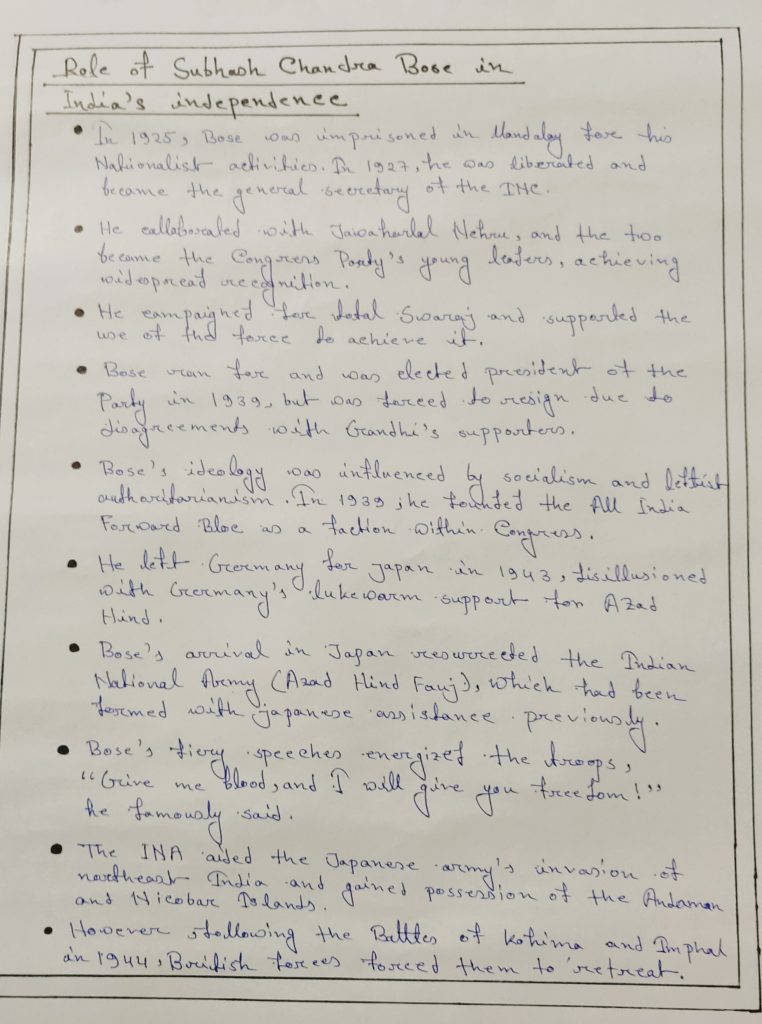 Role of Subhash Chandra Bose in
India's independence
• In 1925, Bose was imprisoned in Mandalay for his
Nationalist activities. In 1927, he was liberated and
became the general secretary of the INC.
• He collaborated with Jawaharlal Nehru, and the two
became the Congress Party's young leaders, achieving
widespread recognition.
• He campaigned for total Swaraj and supported the
use of the force to achieve it.
• Bose ran for and was elected president of the
Party in 1939, but was forced to resign due to
disagreements with Gandhi's supporters.
• Bose's ideology was influenced by socialism and leftist
authoritarianism. In 1939, he founded the All India
Forward Bloc as a faction within Congress.
• He left Germany for japan in 1943, disillusioned
with Germany's lukewarm support for Azad
Hind.
• Bose's arrival in Japan resurrected the Indian
National Army (Azad Hind Fauj), which had been
formed with japanese assistance previously.
• Bose's fiery speeches energized the troops,
"Give me blood, and I will give you freedom!"
he famously said.
• The INA aided the Japanese army's invasion of
northeast India and gained possession of the Andaman
and Nicobar Islands.
• However following the Battles of Kohima and Imphal
in 1944, British forces forced them to retreat.